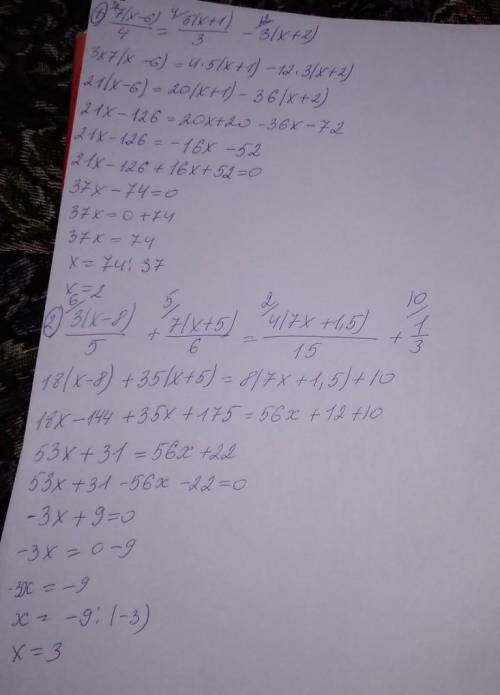 ① ³/7(x-6)/4 = ⁴/5(x+1)/3 - ¹²/3(x+2)
3x7(x-6)=4·5(x+1)-12·3(x+2)
21(x-6)=20(x+1)-36(x+2)
21x-126=20x+20-36x-72
21x-126=-16x-52
21x-126+16x+52=0
37x-74=0
37x=0+74
37x=74
x=74:37
x=2
② ⁶/3(x-8)/5 + ⁵/7(x+5)/6 = ²/4(7x+1,5)/15 + ¹⁰/1/3
18(x-8)+35(x+5)=8(7x+1,5)+10
18x-144+35x+175=56x+12+10
53x+31=56x+22
53x+31-56x-22=0
-3x+9=0
-3x=0-9
-3x=-9
x=-9:(-3)
x=3